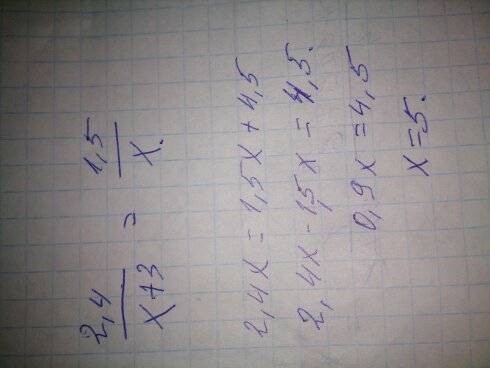 2,4/x+3 = 1,5/x.
2,4x = 1,5x + 4,5
2,4x - 1,5x = 4,5.
0,9x = 4,5
x = 5.